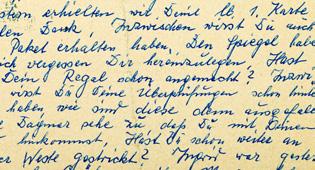 stern erhielten wir Deine lb. 1. Karte
len Dank, Inzwischen wirst Du auch
Paket erhalten haben, Den Spiegel habe
ich vergessen Dir hereinzulegen. Hast
Dein Regal schon angemacht? Inzwi
wirst Du Deine Überprüfungen schon hinte
haben, wie sind diese denn ausgefalle
e Dagmar sehe zu daß Du mit Deinen
umkommst, Hast Du schon weiter an
er Weste gestrickt? Ingrid war geste